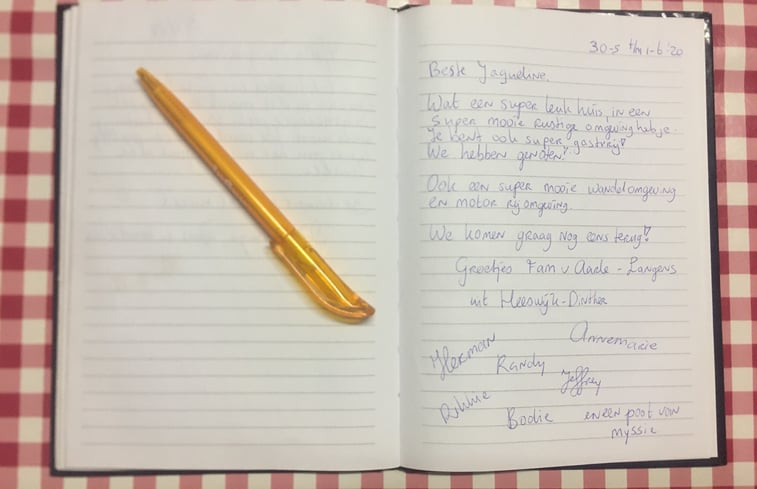 30-5 t/m 1-6 '20
Beste Jaqueline,
Wat een super leuk huis, in een
super mooie rustige omgeving heb je.
Je bent ook super gastvrij!
We hebben genoten!
Ook een super mooie wandelomgeving
en motor rij omgeving.
We komen graag nog eens terug!
Groetjes Fam v Aade - Langens
uit Heeswijk-Dinther
Annemarie
Herman
Randy
Jeffrey
Bodie
en een poot van
myssie